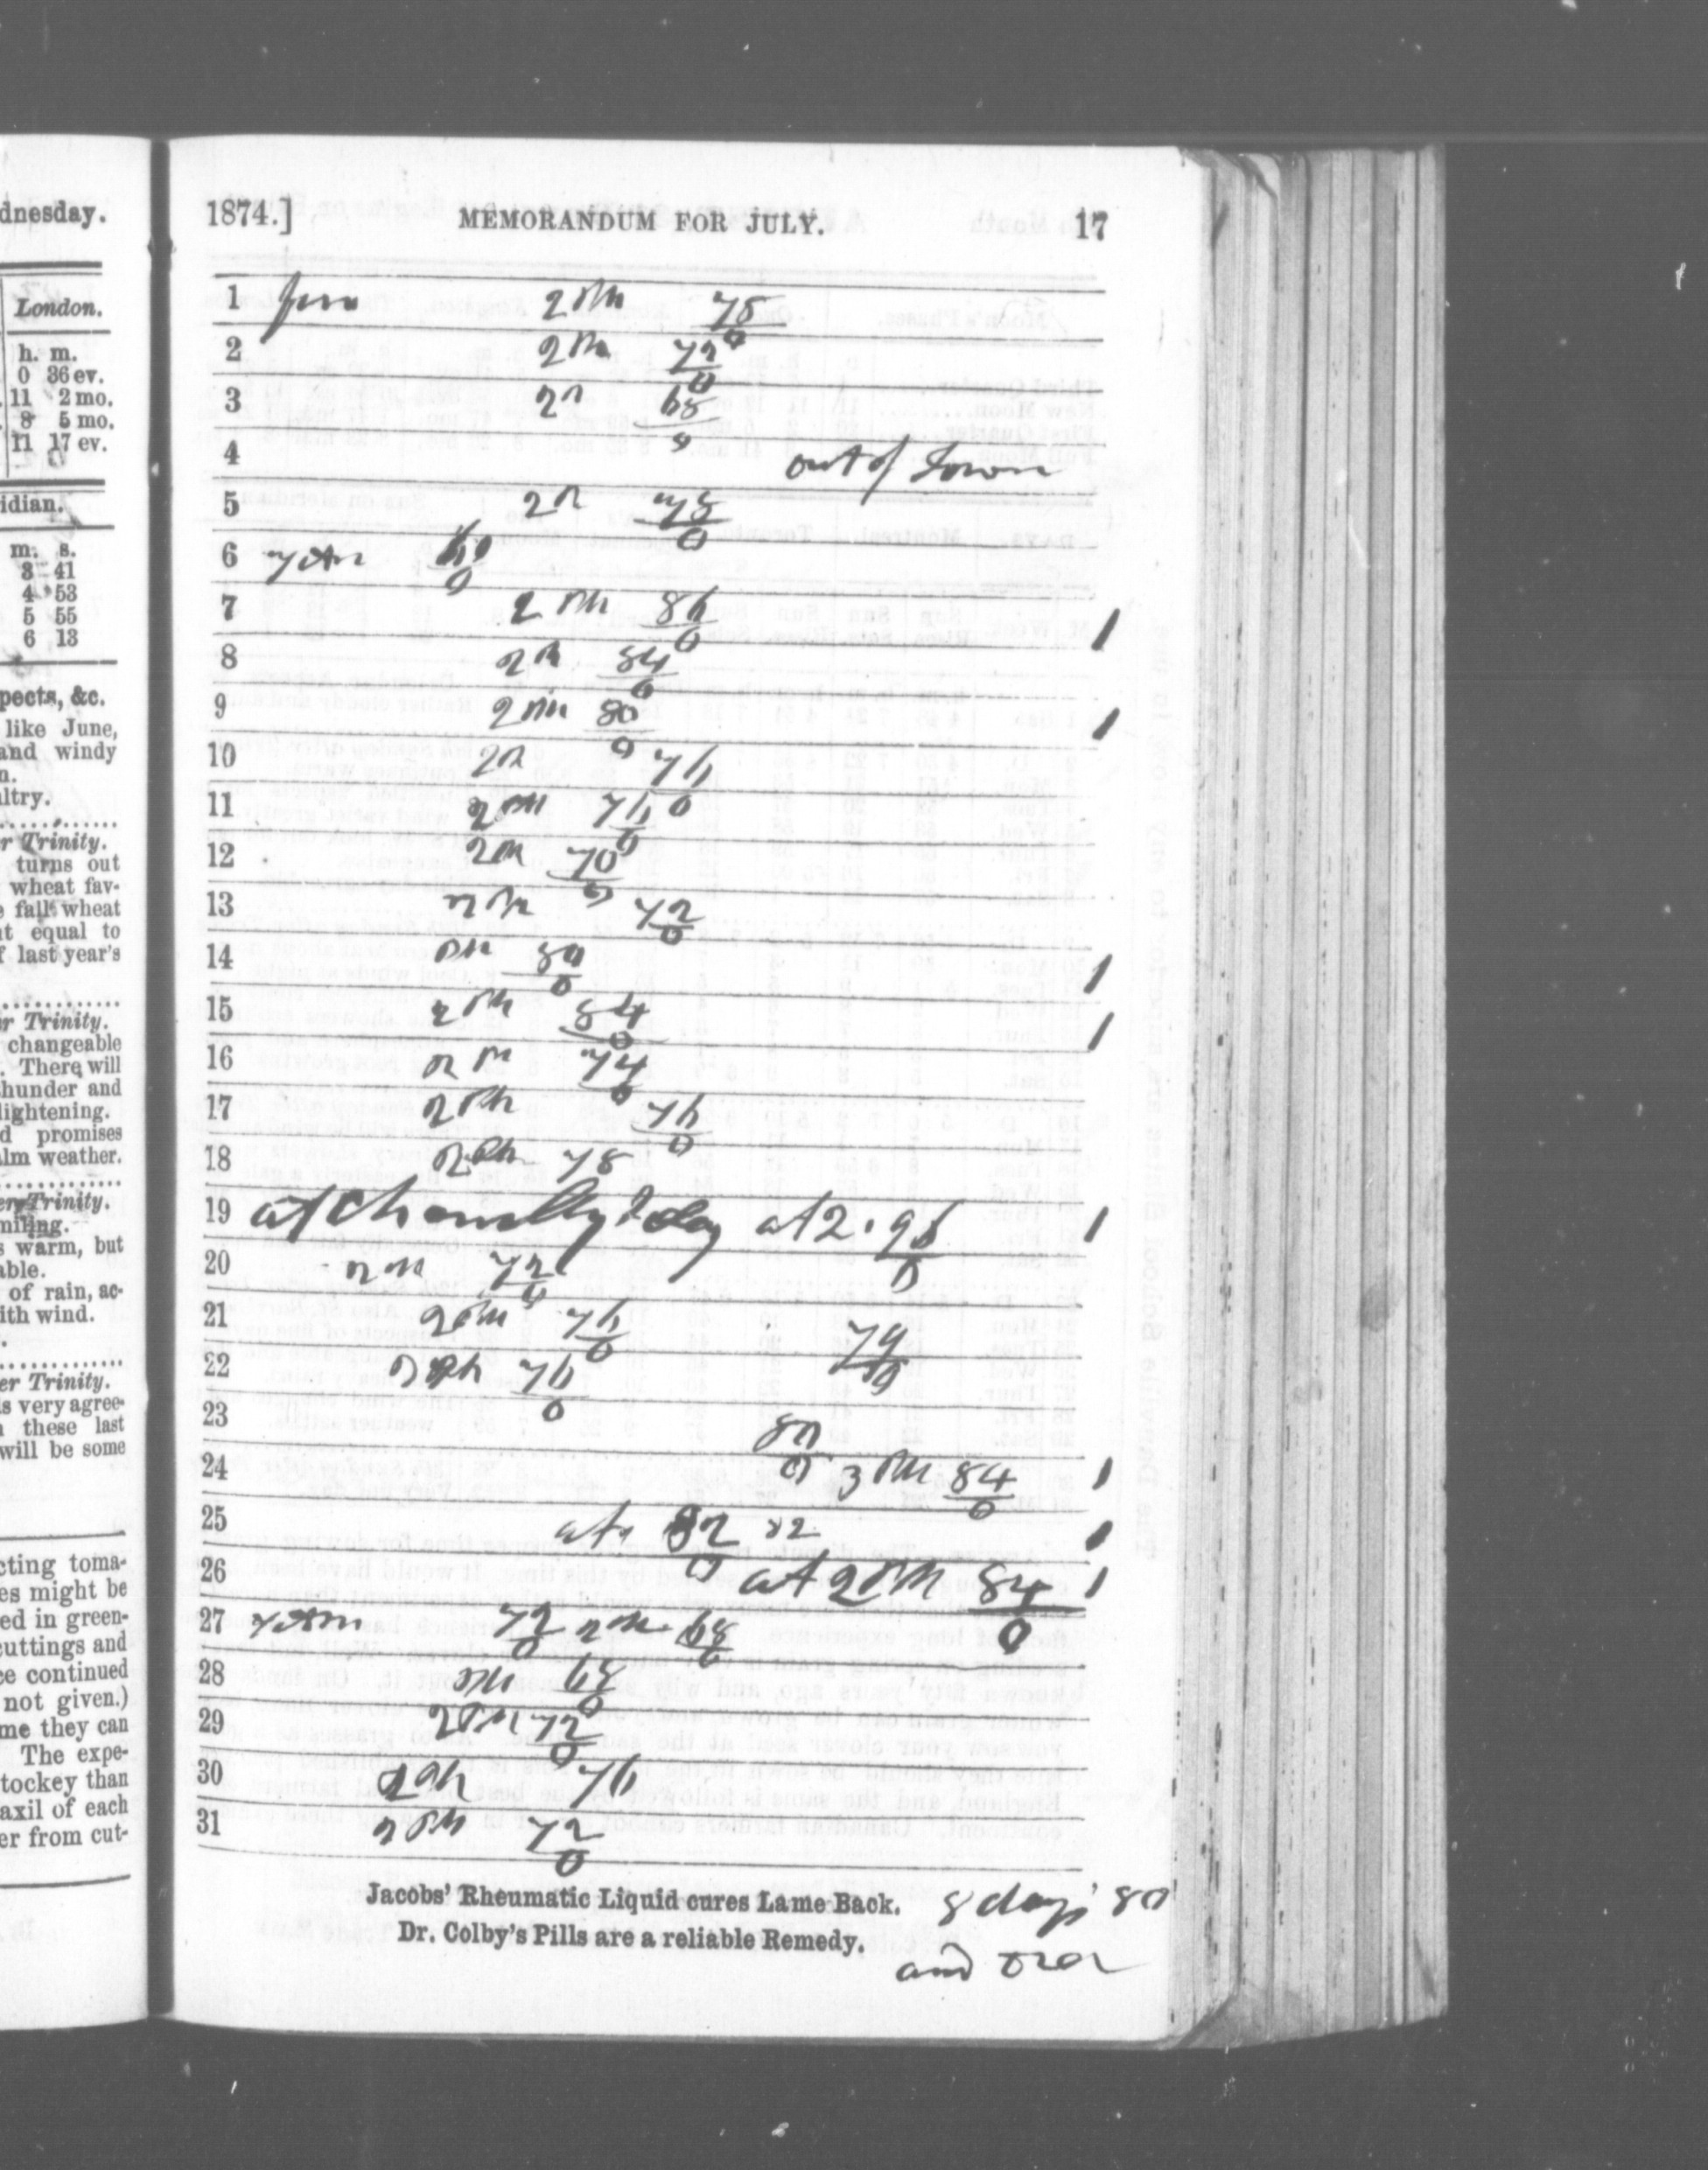 dnesday.
London.
h. m.
0 36 ev.
11 2 mo.
8 5 mo.
11 17 ev.
idian.
m. s.
3 41
4 53
5 55
6 13
pects, &c.
like June,
and windy
n.
ltry.
r Trinity.
turns out
wheat fav-
e fall wheat
at equal to
f last year's
r Trinity.
changeable
. There will
thunder and
lightening.
d promises
alm weather.
er Trinity.
miling.
s warm, but
able.
of rain, ac-
ith wind.
er Trinity.
is very agree-
n these last
will be some
cting toma-
es might be
ed in green-
cuttings and
ce continued
not given.)
me they can
The expe-
tockey than
axil of each
er from cut-
1874.] MEMORANDUM FOR JULY. 17
1 2 PM 78/0
2 2 PM 72/0
3 2 P 68/0
4 out of Town
5 2 P 78/0
6 7 AM
7 2 PM 86/0 1
8 2 PM 84/0
9 2 PM 80/0 1
10 2 P 76/0
11 2 PM 76/0
12 2 PM 70/0
13 2 PM 72/0
14 PM 80/0 1
15 2 PM 84/0 1
16 2 PM 74/0
17 2 PM 76/0
18 2 PM 78
19 at 2. 96/0 1
20 2 PM 72/0
21 2 PM 76/0
22 2 PM 76/0 79/0
23 80/0
24 3 PM 84/0 1
25 at 82/0 82 1
26 at 2 PM 84/0 1
27 7 AM 72/0 2 PM 68/0
28 2 PM 68/0
29 2 PM 72/0
30 2 PM 76
31 2 PM 72/0
Jacobs' Rheumatic Liquid cures Lame Back.
8 days 80
Dr. Colby's Pills are a reliable Remedy.
and over